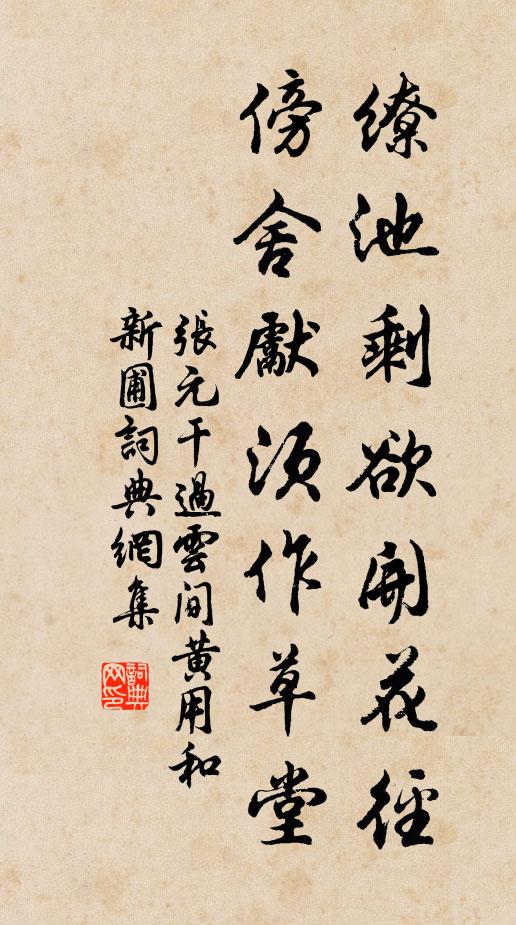 繚池剩欲開花徑
傍舍獻須作草堂
張元干過雲間黃用和
新圃詞典網集
詞典網印